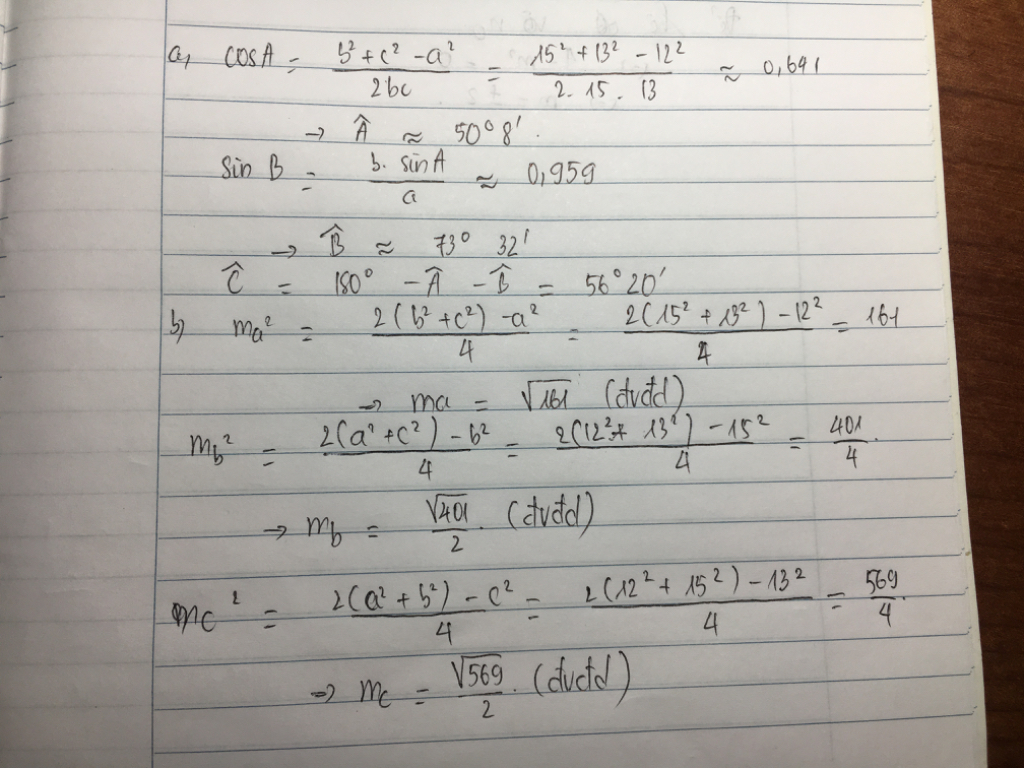 a, cosA = (b² + c² - a²)/(2bc) = (15² + 13² - 12²)/(2. 15 . 13) ≈ 0,641
→ Â ≈ 50° 8' .
sin B = (b. sinA)/a ≈ 0,959
→ B̂ ≈ 73° 32'
Ĉ = 180° - Â - B̂ = 56° 20'
b) ma² = (2(b² + c²) - a²)/4 = (2(15² + 13²) - 12²)/4 = 161
→ ma = √161 (đvđd)
mb² = (2(a² + c²) - b²)/4 = (2(12² + 13²) - 15²)/4 = 401/4 .
→ mb = √401/2 . (đvđd)
mc² = (2(a² + b²) - c²)/4 = (2(12² + 15²) - 13²)/4 = 569/4 .
→ mc = √569/2 . (đvđd)